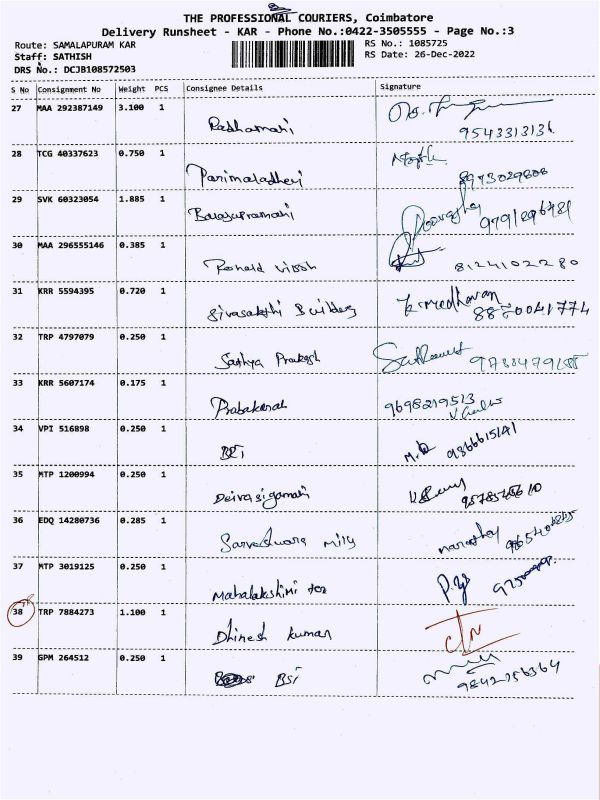 THE PROFESSIONAL COURIERS, Coimbatore
Delivery Runsheet - KAR - Phone No.:0422-3505555 - Page No.:3
Route: SAMALAPURAM KAR
RS No.: 1085725
Staff: SATHISH
RS Date: 26-Dec-2022
DRS No.: DCJB108572503
S No Consignment No Weight PCS Consignee Details Signature
27 MAA 292387149 3.100 1
Radhamani 9543313131
28 TCG 40337623 0.750 1
Parimaladhevi 8973029808
29 SVK 60323054 1.885 1
Balasupramani
30 MAA 296555146 0.385 1
Ronald 8124102280
31 KRR 5594395 0.720 1
Sivasakthi Builders K. Medhavan
8870041774
32 TRP 4797079 0.250 1
Sathya Prakash
33 KRR 5607174 0.175 1
Prabakaran 9698219513
34 VPI 516898 0.250 1
M.K 9366615141
35 MTP 1200994 0.250 1
Deivasigamani
36 EDQ 14280736 0.285 1
Sarveshwara Mills
37 MTP 3019125 0.250 1
Mahalakshmi Tex
38 TRP 7884273 1.100 1
Dhinesh Kumar
39 GPM 264512 0.250 1
BSI 9842256364